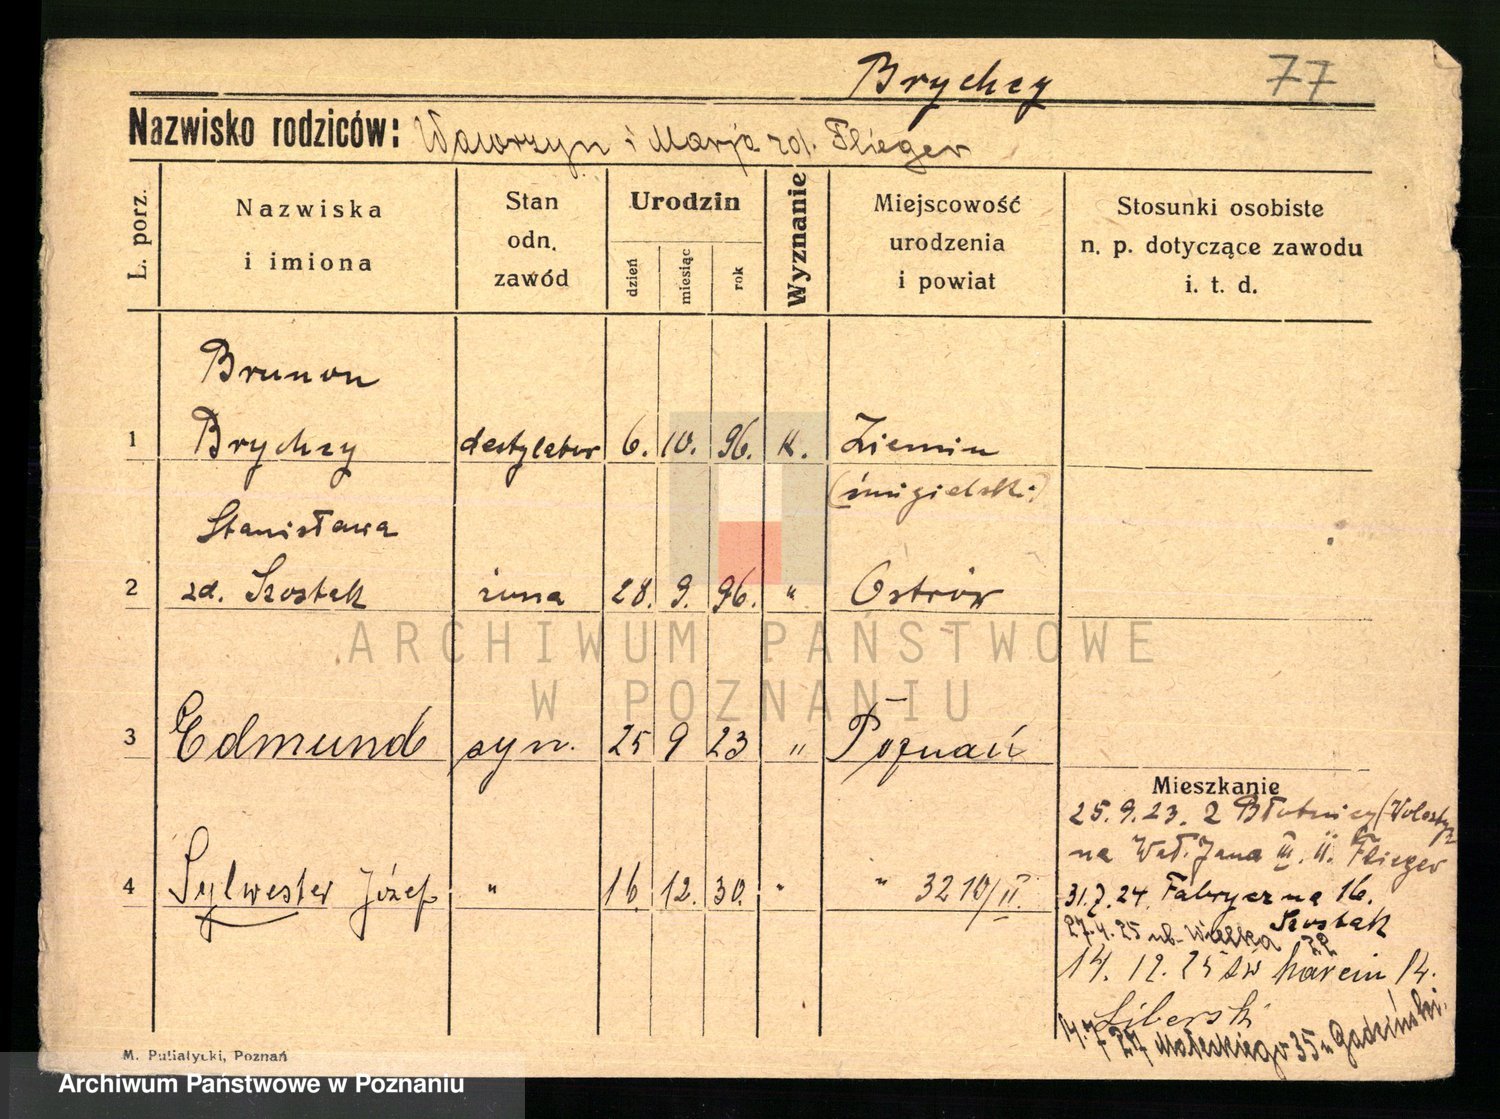 Brychcy 77
Nazwisko rodziców: Wawrzyn i Marja zd. Flieger
L. porz.
Nazwiska i imiona
Stan odn. zawód
Urodzin
dzień miesiąc rok
Wyznanie
Miejscowość urodzenia i powiat
Stosunki osobiste n. p. dotyczące zawodu i. t. d.
Brunon
1 Brychcy destylator 6. 10. 96. k. Ziemin
(śmigielski)
Stanisława
2 zd. Szostak żona 28. 9. 96. " Ostrów
3 Edmund syn. 25 9 23 " Poznań
4 Sylwester Józef " 16. 12. 30. " " 3210/II.
Mieszkanie
25. 9. 23. z Błotnicy (Wolsztyn
na Wał. Jana III. 11. Flieger
31.7.24. Fabryczna 16.
Szostak
27.4.25 ul. Wielka 22
14. 12. 25 św Marcin 14.
Liberski
14.7 27 Małeckiego 35
M. Putiatycki, Poznań
ARCHIWUM PAŃSTWOWE
W POZNANIU
Archiwum Państwowe w Poznaniu